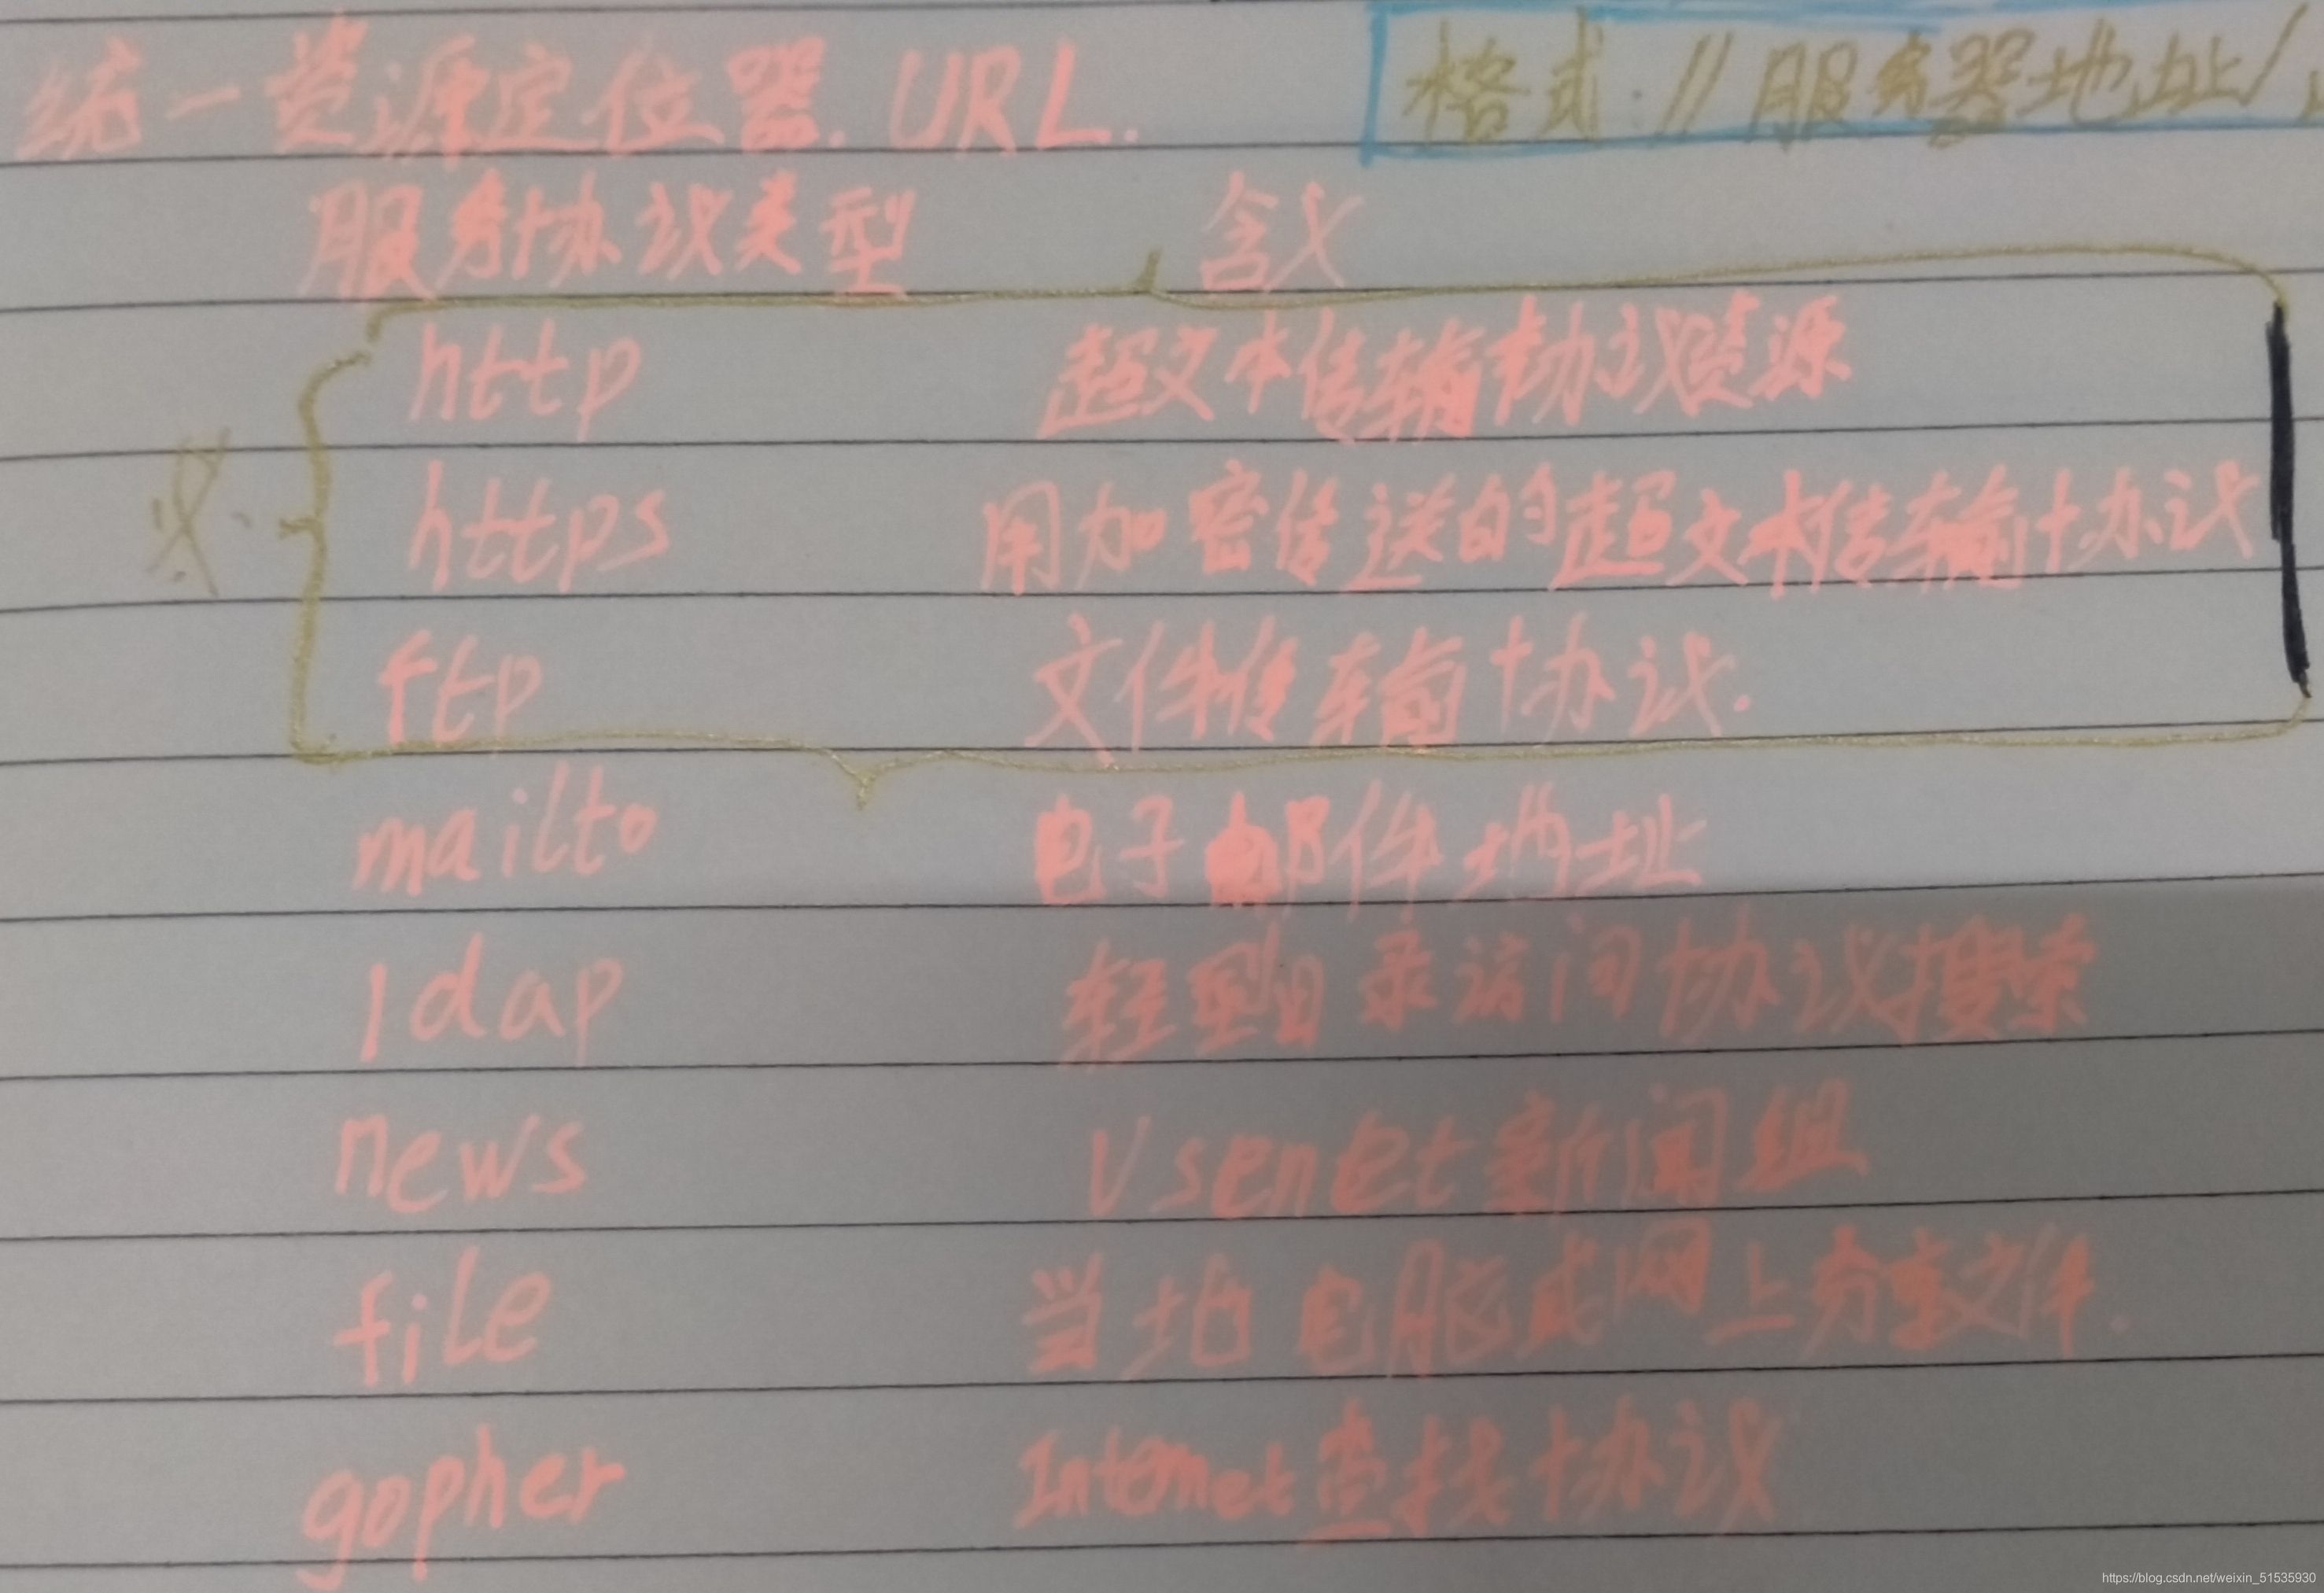 统一资源定位器. URL.
格式://服务器地址/
服务协议类型 含义
http 超文本传输协议资源
※. https 用加密传送的超文本传输协议
ftp 文件传输协议.
mailto 电子邮件地址
ldap 轻型目录访问协议搜索
news Usenet新闻组
file 当地电脑或网上分享文件.
gopher Internet查找协议
https://blog.csdn.net/weixin_51535930